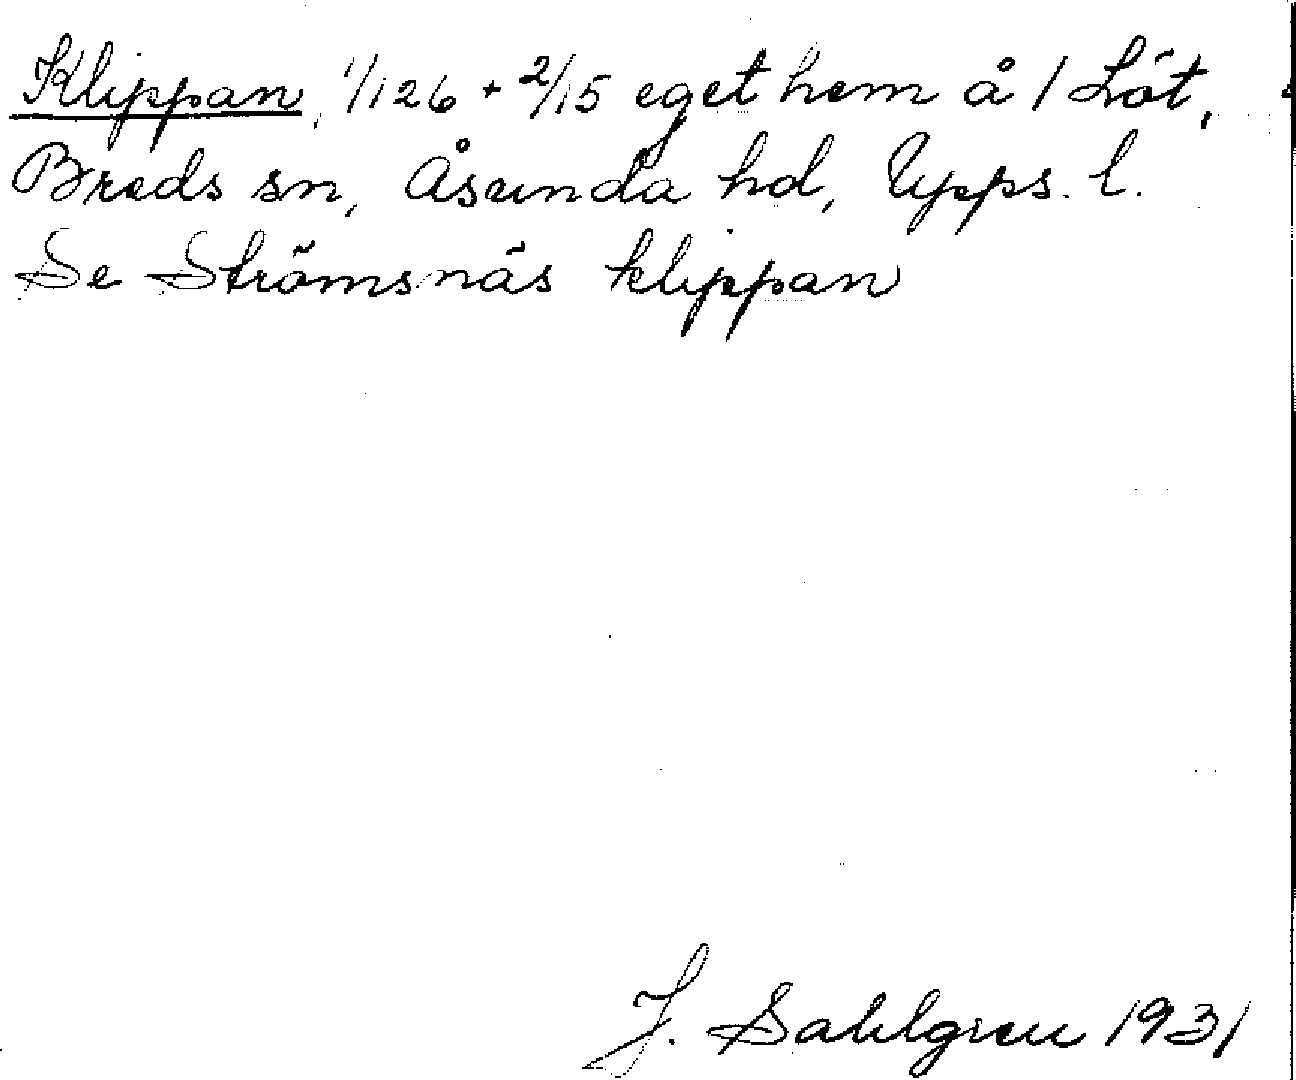 Klippan, 1/126 + 2/15 eget hem å 1 Löt,
Breds sn, Åsunda hd, Upps. l.
Se Strömsnäs klippan
J. Sahlgren 1931